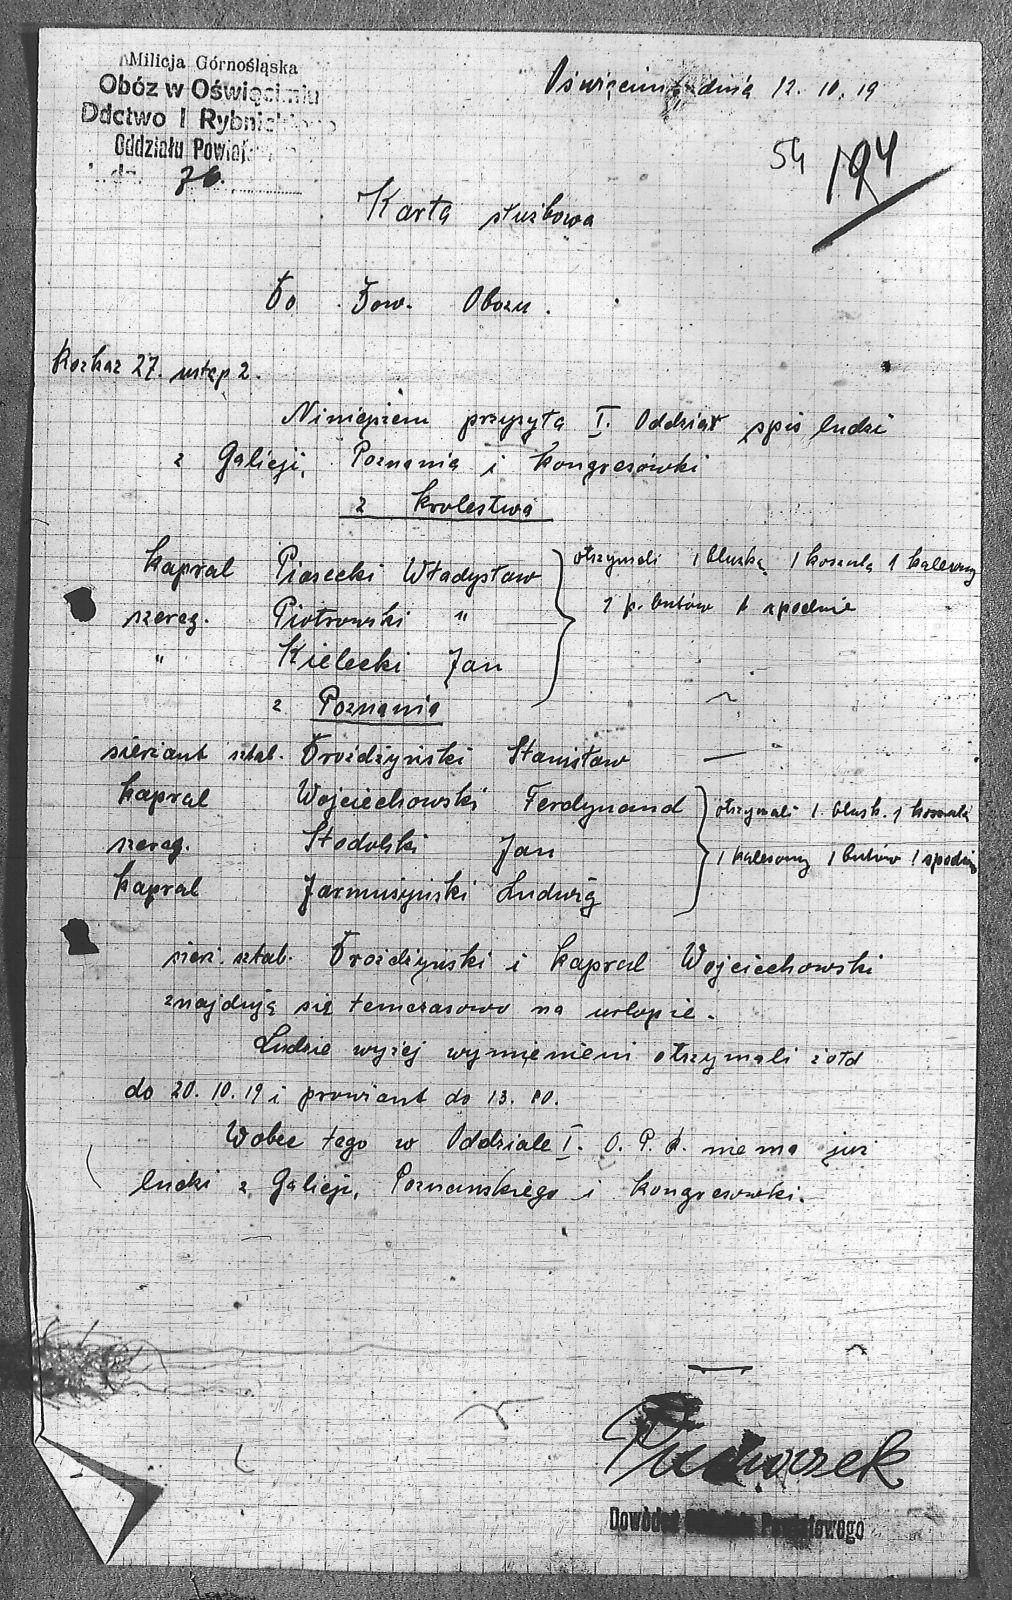 Milicja Górnośląska
Obóz w Oświęcimiu
Ddctwo I Rybnickiego
Oddziału Powiatowego
L. dz. 70.
Oświęcim, dnia 12. 10. 19
54 194
Karta służbowa
Do Dow. Obozu.
Rozkaz 27. ustęp 2.
Niniejszem przysyła I. Oddział spis ludzi
z Galicji, Poznania i Kongresówki
z Krolestwa
Kapral Piasecki Władysław
otrzymali 1 bluzkę 1 koszulą 1 kalesony
szereg. Piotrowski "
1 p. butów 1 spodnie
" Kielecki Jan
z Poznania
sierżant sztab. Drożdżyński Stanisław —
Kapral Wojciechowski Ferdynand
otrzymali 1. blusk. 1 koszulą
szereg. Stodolski Jan
1 kalesony 1 butów 1 spodnie
Kapral Jarmuszyński Ludwig
sierż. sztab. Drożdżyński i Kapral Wojciechowski
znajdują się temczasowo na urlopie.
Ludzie wyżej wymienieni otrzymali żołd
do 20. 10. 19 i prowiant do 13. 10.
Wobec tego w Oddziale I. O. P. R. niema już
ludzi z Galicji, Poznanskiego i Kongresowki.
Dowódca Oddziału Powiatowego